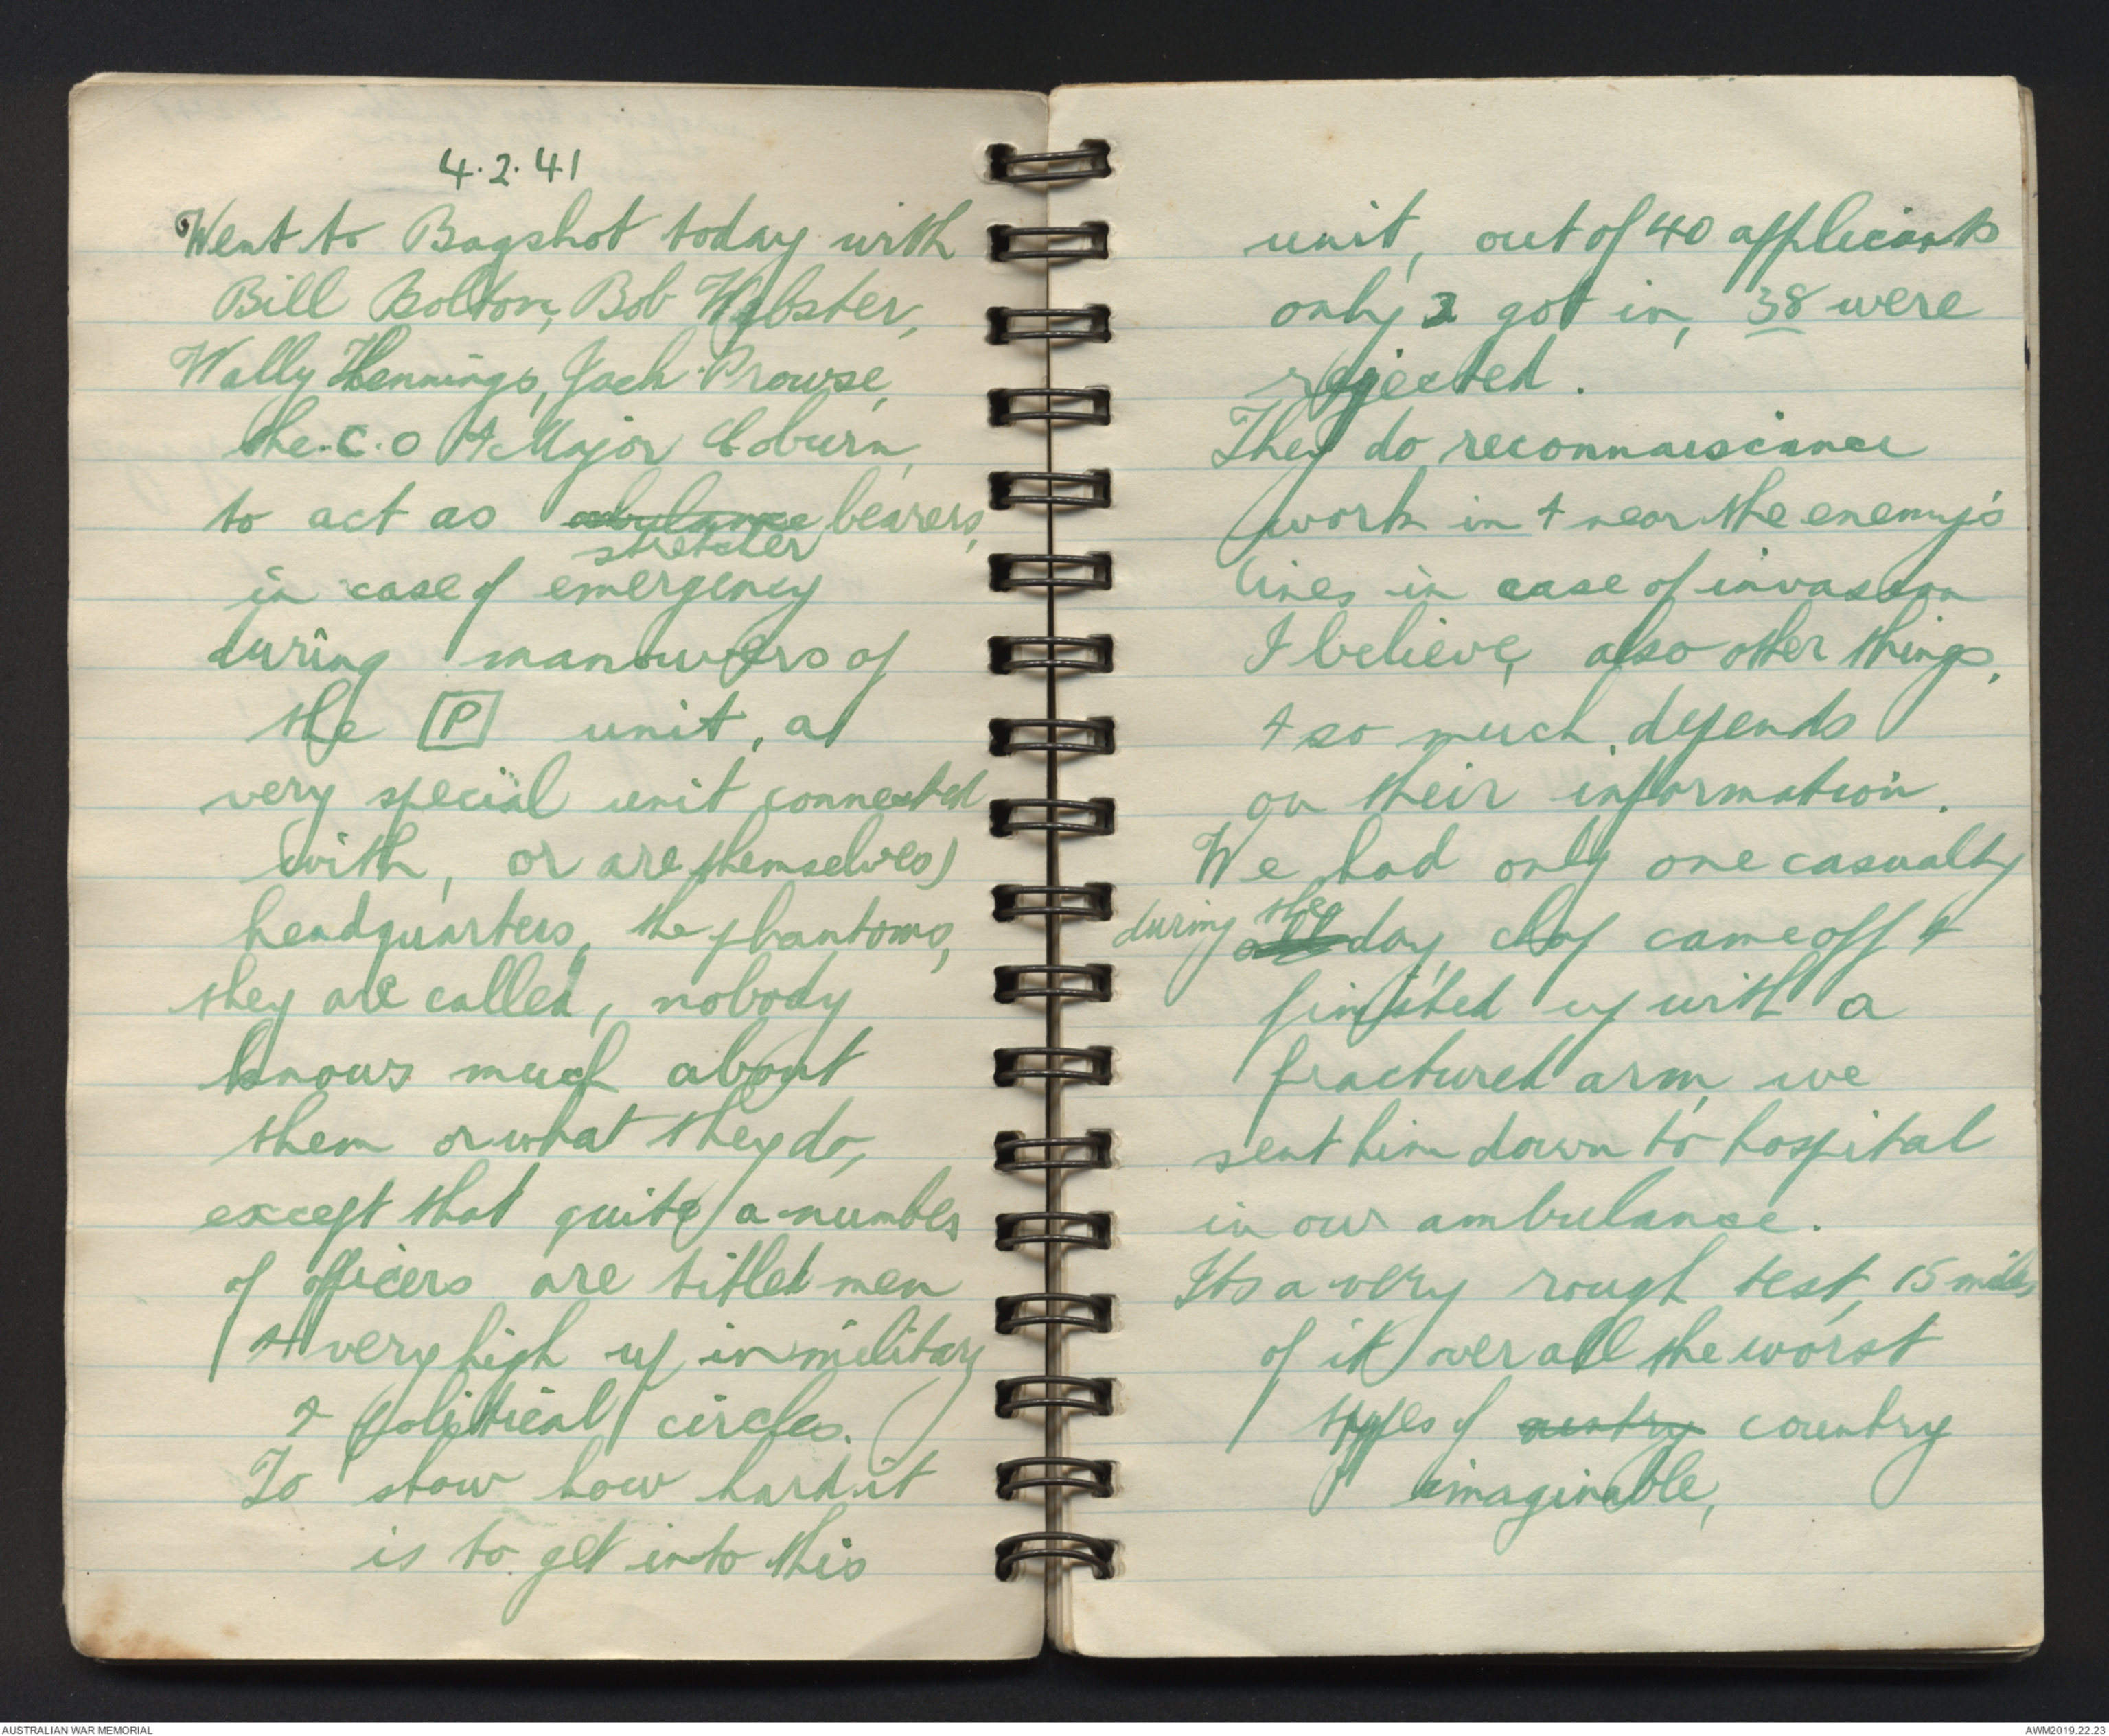 4.2.41
Went to Bagshot today with
Bill Bolton, Bob Webster,
Wally Hennings, Jack Prowse,
the C.O & Major Coburn,
to act as bearers,
stretcher
in case of emergency
during manouvers of
the P unit, a
very special unit connected
with, or are themselves)
headquarters, the phantoms,
they are called, nobody
knows much about
them or what they do,
except that quite a number
of officers are titled men
& very high up in military
& political circles. )
To show how hard it
is to get into this
unit, out of 40 applicants
only 2 got in, 38 were
rejected.
They do reconnaiscance
work in & near the enemy's
lines in case of invasion
I believe, also other things,
& so much depends
on their information.
We had only one casualty
the
during day, chap came off &
finished up with a
fractured arm, we
sent him down to hospital
in our ambulance.
Its a very rough test, 15 miles
of it over all the worst
types of country
imaginable,
AUSTRALIAN WAR MEMORIAL
AWM2019.22.23